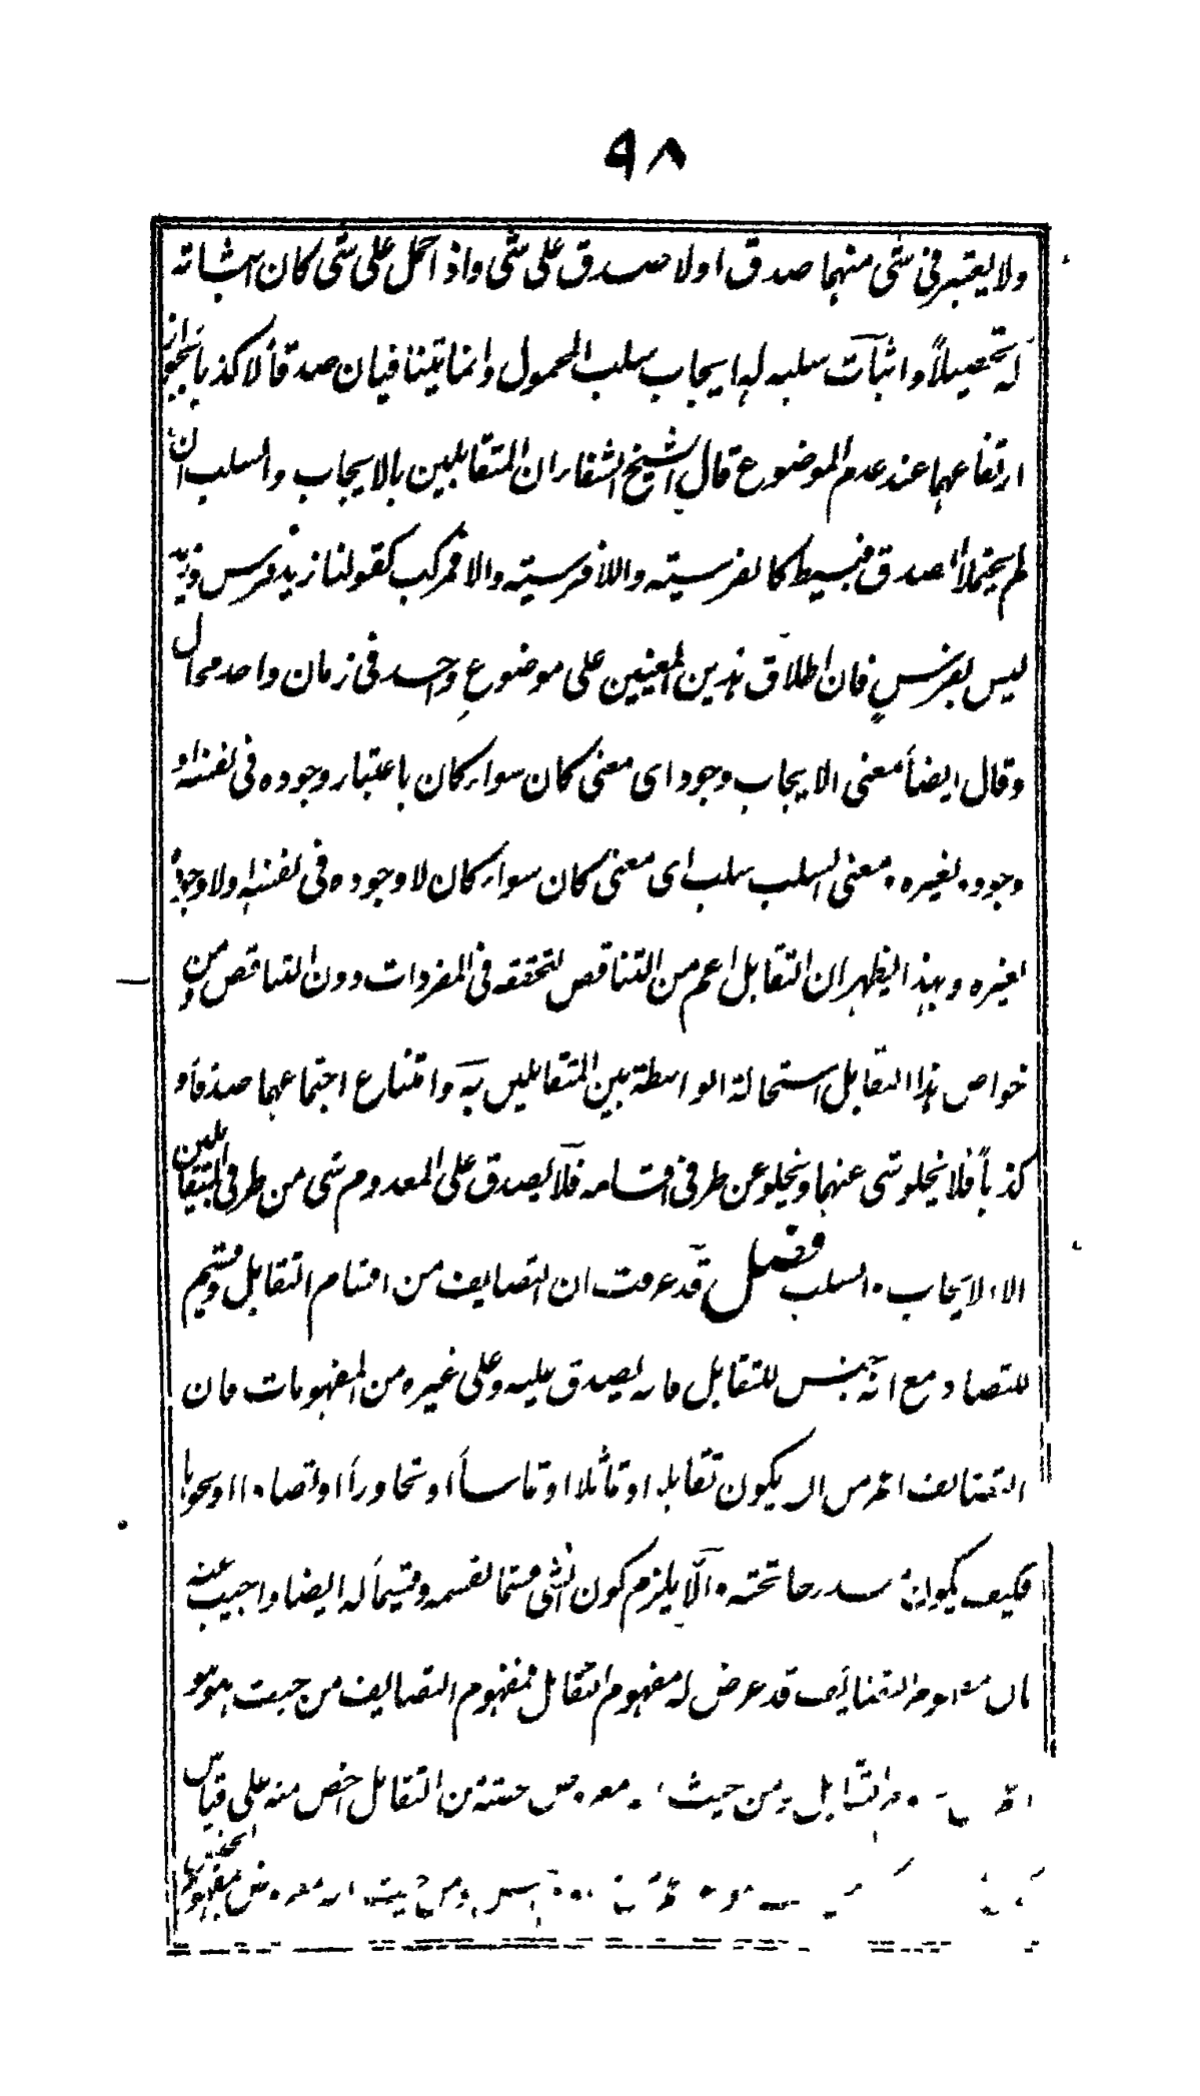 ٩٨
ولا يعتبر فى شئ منهما صدق او لا صدق على شئ واذا حمل على شئ كان اثباته
له تحصيلاً واثبات سلبه له ايجاب سلب المحمول وانما يتنافيان صدقاً لا كذباً لجواز
ارتفاعهما عند عدم الموضوع قال الشيخ الشفاء ان المتقابلين بالايجاب والسلب ان
لم يحتملا الصدق فبسيط كالفرسية واللافرسية والا فمركب كقولنا زيد فرس وزيد
ليس بفرسٍ فان اطلاق هذين المعنيين على موضوعٍ واحد فى زمان واحد محال
وقال ايضاً معنى الايجاب وجود اى معنى كان سواء كان باعتبار وجوده فى نفسه او
وجوده لغيره ومعنى السلب سلب اى معنى كان سواء كان لا وجوده فى نفسه او لا وجوده
لغيره وبهذا يظهر ان التقابل اعم من التناقض لتحققه فى المفردات دون التناقض ومن
خواص هذا التقابل استحالة الواسطة بين المتقابلين به وامتناع اجتماعهما صدقاً و
كذباً فلا يخلو شئ عنهما ويخلو عن طرفى اقسامه فلا يصدق على المعدوم شئ من طرفى المتقابلين
الا الايجاب والسلب فصل قد عرفت ان التضايف من اقسام التقابل وقسيم
للتضاد مع انه جنس للتقابل فانه يصدق عليه وعلى غيره من المفهومات فان
التضايف اعم من ان يكون تقابلا او تماثلا او تماساً او تجاوراً او تضادا او نحوها
فكيف يكون مندرجا تحته والّا يلزم كون الشئ قسما لقسمه وقسيماً له ايضا واجيب عنه
بان مفهوم التضايف قد عرض له مفهوم التقابل فمفهوم التضايف من حيث هو هو
اعم من التقابل ومن حيث معروض حصة من التقابل اخص منه على قياس
من حيث انه معروض مفهوم الجنس